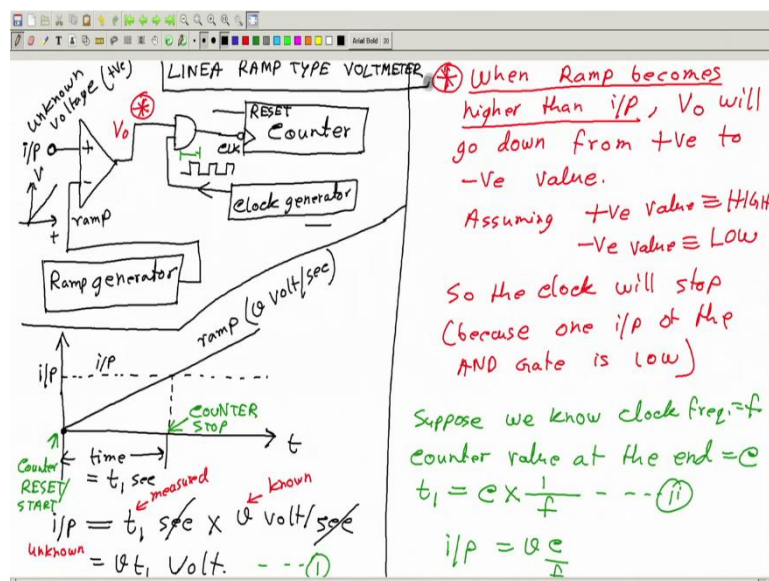 Arial Bold 20
LINEA RAMP TYPE VOLTMETER
unknown
voltage (+ve)
i/p
+
-
V
t
ramp
Vo
*
RESET
Counter
CLK
Clock generator
Ramp generator
ramp (v volt/sec)
i/p
i/p
COUNTER
STOP
t
time
= t1 sec
Counter
RESET/
START
measured
known
i/p = t1 sec x v volt/sec
unknown
= vt1 Volt. --- (i)
* When Ramp becomes
higher than i/p, Vo will
go down from +ve to
-ve value.
Assuming +ve value ≡ HIGH
-ve value ≡ LOW
So the clock will stop
(because one i/p of the
AND Gate is low)
Suppose we know clock freq. = f
counter value at the end = c
t1 = c x 1/f ---- (ii)
i/p = v c/f